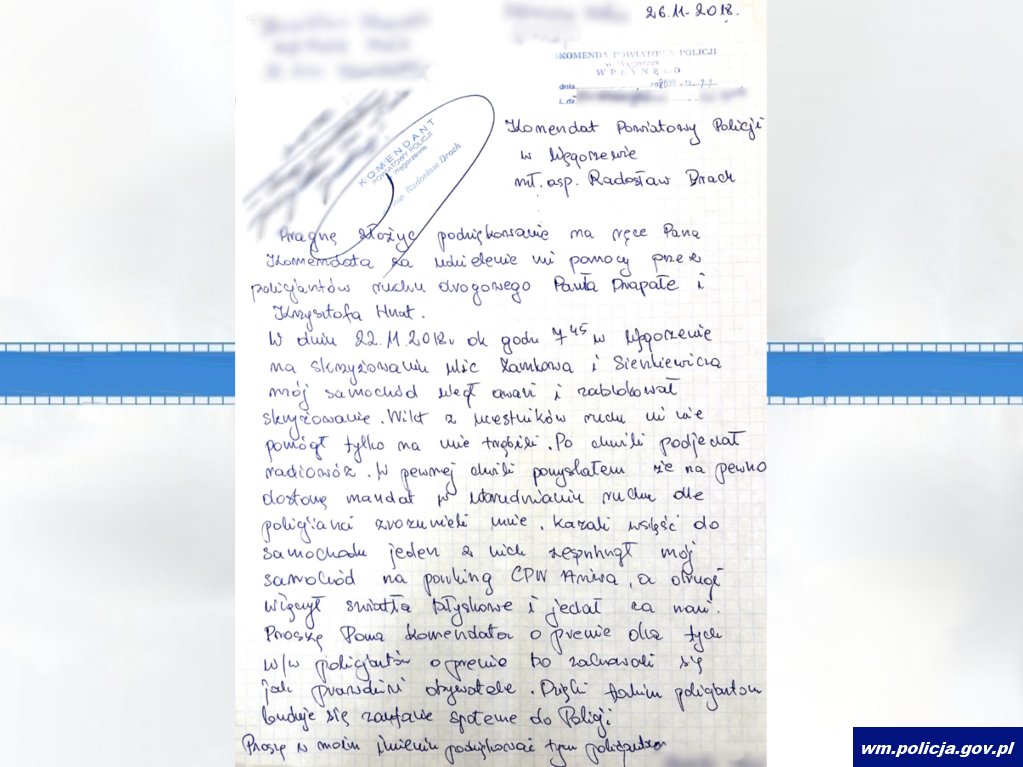 26.11.2018.
KOMENDA POWIATOWA POLICJI
w Węgorzewie
WPŁYNĘŁO
dnia
L.dz.
KOMENDANT
POWIATOWY POLICJI
w Węgorzewie
Radosław Drach
Komendat Powiatowy Policji
w Węgorzewie
mł. asp. Radosław Drach
Pragnę złożyć podziękowanie na ręce Pana
Komendata za udzielenie mi pomocy przez
policjantów ruchu drogowego Pawła Drapałe i
Krzysztofa Hunt.
W dniu 22.11.2018r ok godu 7 45 w Węgorzewie
na skrzyżowaniu ulic Zamkowa i Sienkiewicza
mój samochód uległ awari i zablokował
skrzyżowanie. Nikt z ucestników ruchu mi nie
pomógł tylko na mie trąbili. Po chwili podjechał
radiowóz. W pewnej chwili pomyslałem że na pewno
dostonę mandat w utrudnianiu ruchu ale
policjianci zrozumieli mnie. Kazali wsiąść do
samochodu jeden z nich zepchnął mój
samochód na parking CPN Aniwa, a drugi
włączył swiatła błyskowe i jechał za nami.
Proszę Pana Komendata o premie dla tych
w/w policjantów o premie bo zachowali się
jak prawdziwi obywatele. Dzięki takim policjantom
buduje się zaufanie społeczne do Policji
Proszę w moim imieniu podziękować tym policjantom
wm.policja.gov.pl